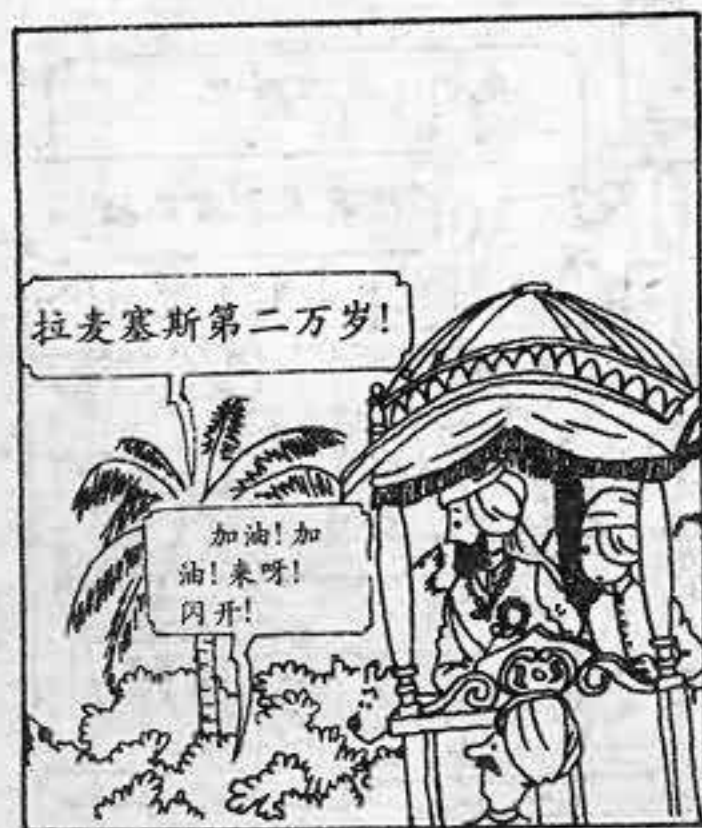 拉麦塞斯第二万岁!
加油!加
油!来呀!
闪开!